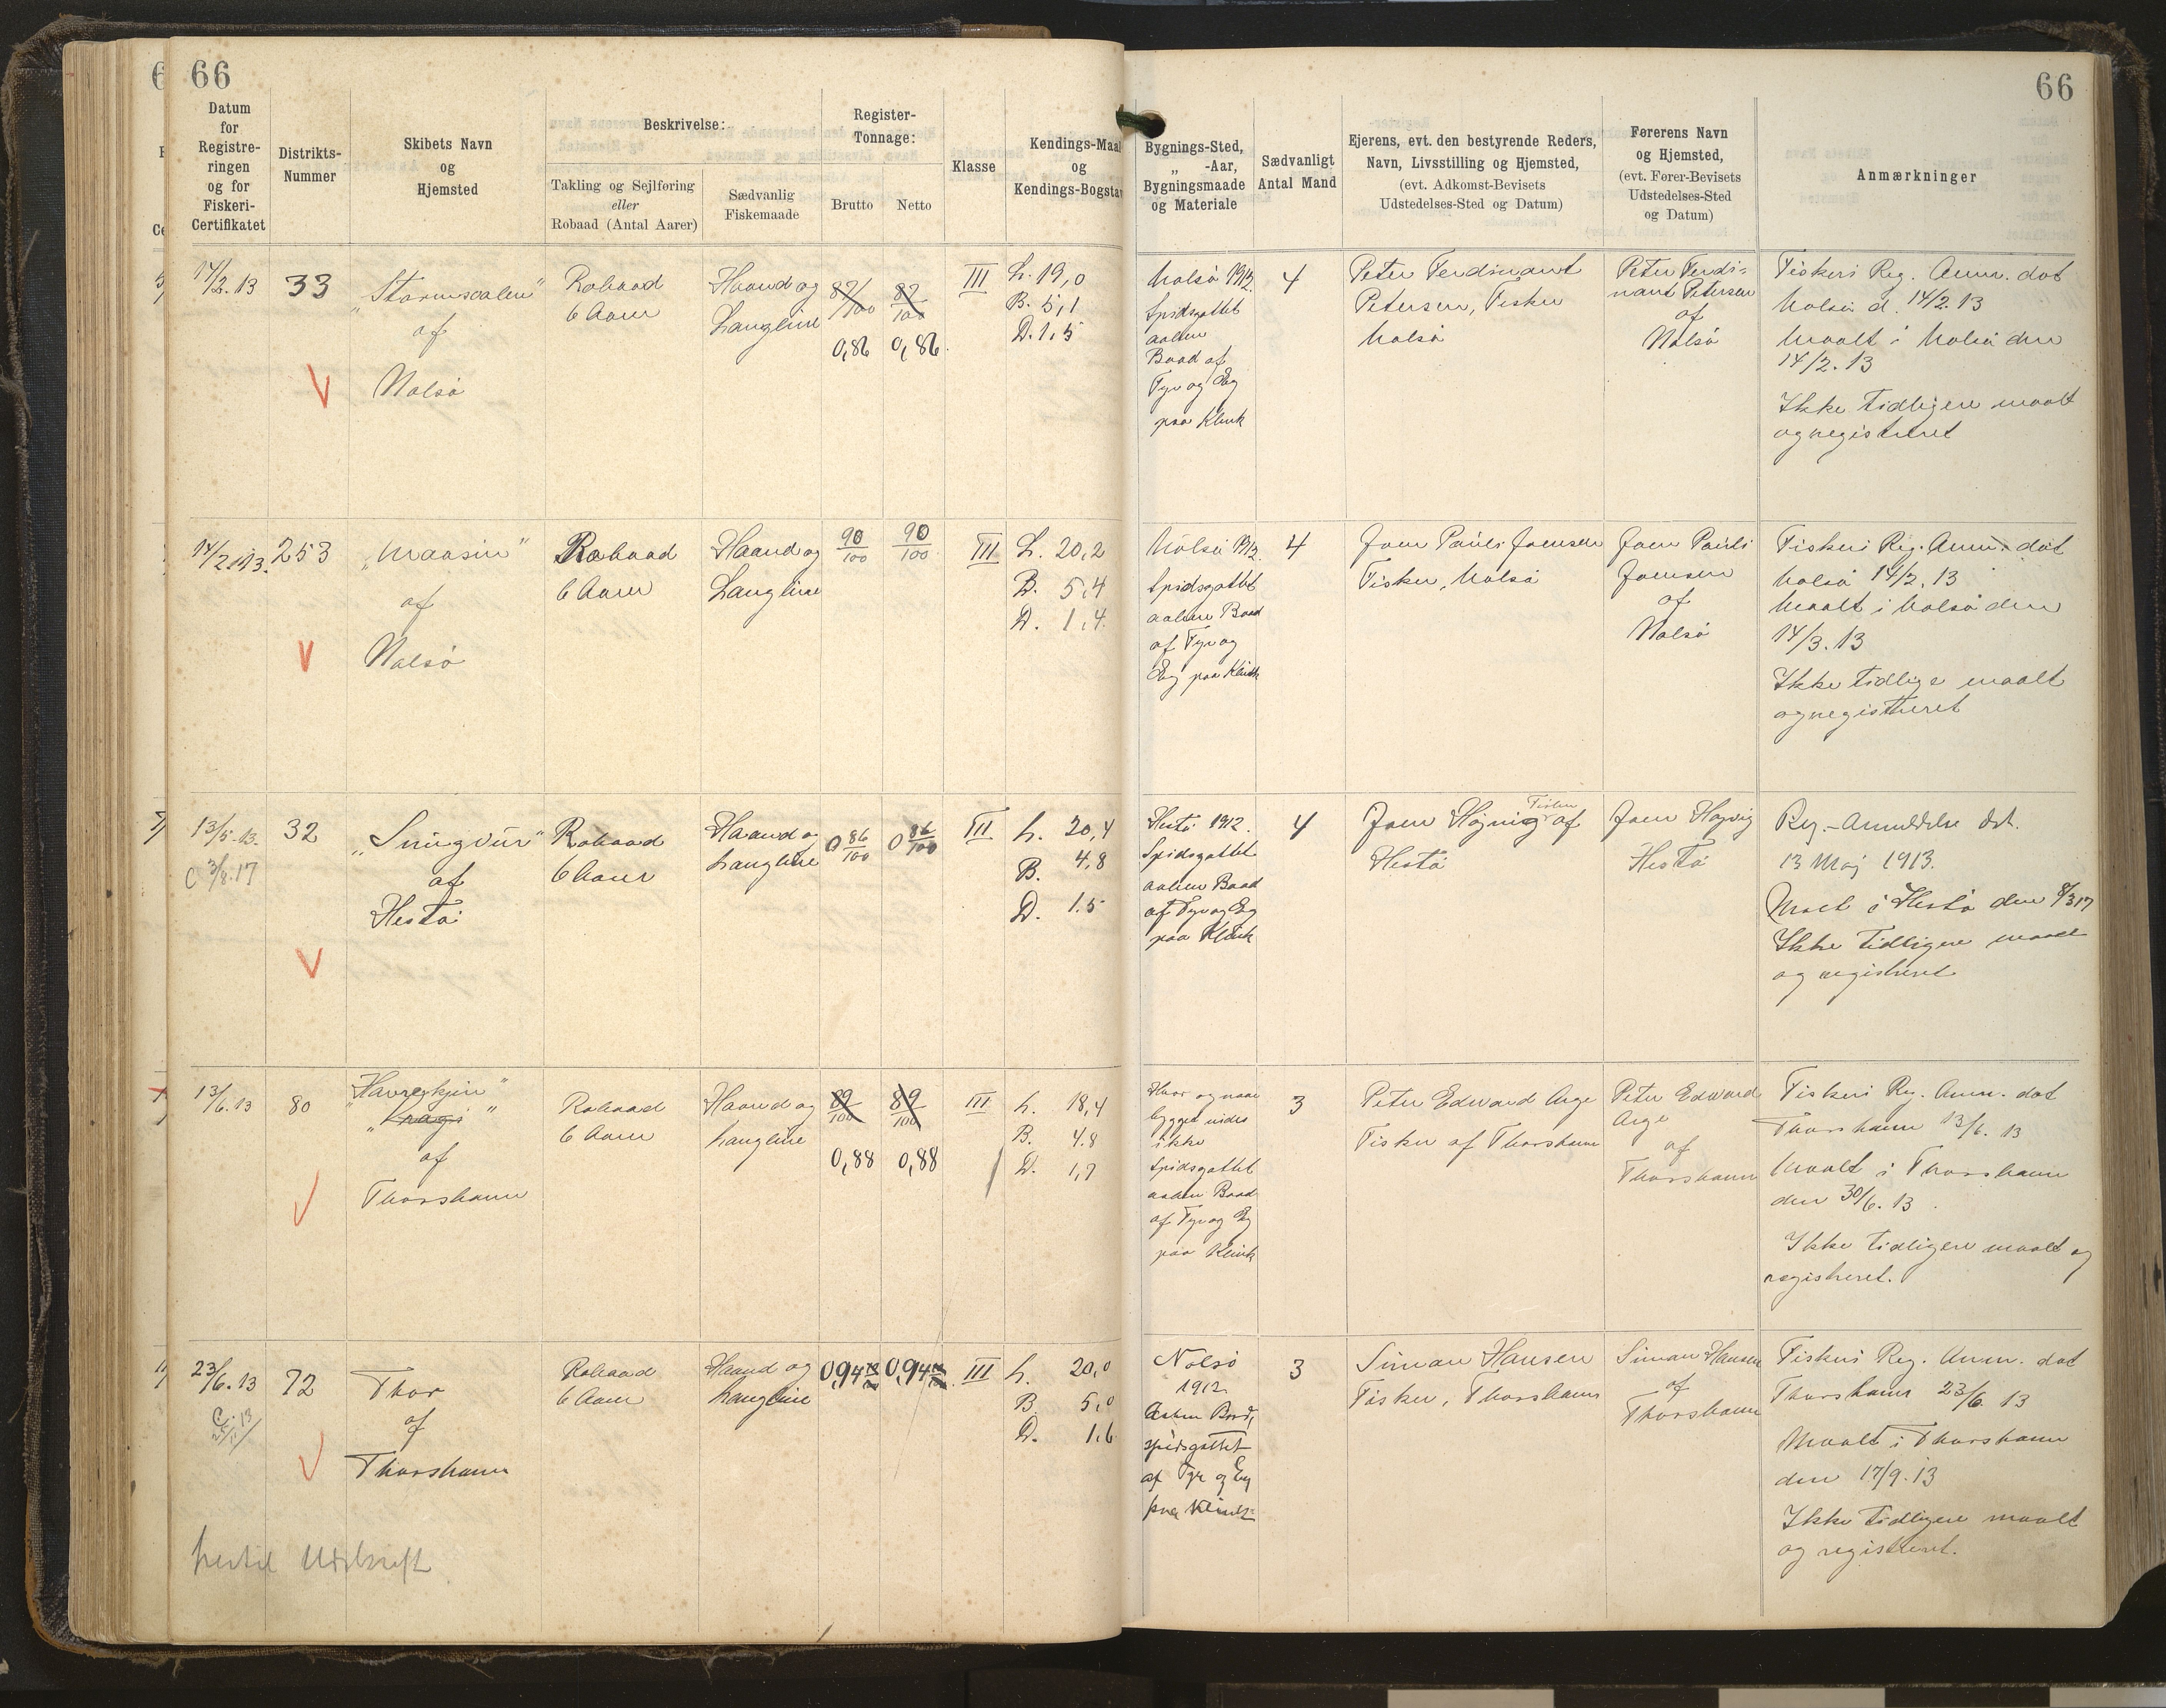 66
66
Datum
for
Registre-
ringen
og for
Fiskeri-
Certifikatet
Distrikts-
Nummer
Skibets Navn
og
Hjemsted
Beskrivelse:
Takling og Sejlføring
eller
Robaad (Antal Aarer)
Sædvanlig
Fiskemaade
Register-
Tonnage:
Brutto
Netto
Klasse
Kendings-Maal
og
Kendings-Bogstav
Bygnings-Sted,
„ -Aar,
Bygningsmaade
og Materiale
Sædvanligt
Antal Mand
Ejerens, evt. den bestyrende Reders,
Navn, Livsstilling og Hjemsted,
(evt. Adkomst-Bevisets
Udstedelses-Sted og Datum)
Førerens Navn
og Hjemsted,
(evt. Fører-Bevisets
Udstedelses-Sted
og Datum)
Anmærkninger
14/2.13
33
„Stormsvalen"
af
Nolsö
Robaad
6 Aarer
Haand og
Langline
87/100
87/100
0,86
0,86
III
L. 19,0
B. 5,1
D. 1,5
Nolsö 1912
Spidsgattet
aaben
Baad af
Fyr og Eg
paa Klink
4
Peter Ferdinant
Petersen, Fisker
Nolsö
Peter Ferdi-
nant Petersen
af
Nolsö
Fiskeri Reg. Anm. dat
Nolsö d. 14/2.13
Maalt i Nolsö den
14/2.13
Ikke tidligere maalt
og registreret
14/2 1913.
253
„Maasin"
af
Nolsö
Robaad
6 Aarer
Haand og
Langline
90/100
90/100
III
L. 20,2
B. 5,4
D. 1,4
Nolsö 1912
Spidsgattet
aaben Baad
af Fyr og
Eg paa Klink
4
Joen Pauli Joensen
Fisker, Nolsö
Joen Pauli
Joensen
af
Nolsö
Fiskeri Reg. Anm. dat
Nolsö 14/2.13
Maalt i Nolsö den
14/3.13
Ikke tidlige maalt
og registreret
13/5.13.
C 3/8.17
32
„Snúgvur"
af
Hestö
Robaad
6 Aarer
Haand og
Langline
0 86/100
0 86/100
III
L. 20,4
B. 4,8
D. 1.5
Hestö 1912.
Spidsgattet
aaben Baad
af Fyr og Eg
paa Klink
4
Fisker
Joen Højvig af
Hestö
Joen Højvig
Hestö
Reg.-Anmeldelse dat.
13 Maj 1913.
Maalt i Hestö den 8/3 17
Ikke tidligere maalt
og registreret
13/6.13
80
„Havrekjin"
„Kragi"
af
Thorshavn
Robaad
6 Aarer
Haand og
Langline
89/100
89/100
0,88
0,88
III
L. 18,4
B. 4.8
D. 1,7
Hvor og naar
bygget vides
ikke
Spidsgattet
aaben Baad
af Fyr og Eg
paa Klink
3
Peter Edward Arge
Fisker af Thorshavn
Peter Edward
Arge
af
Thorshavn
Fiskeri Reg. Anm. dat
Thorshavn 13/6.13
Maalt i Thorshavn
den 30/6.13
Ikke tidligere maalt og
registreret.
23/6.13
72
Thor
af
Thorshavn
Robaad
6 Aarer
Haand og
Langline
0,94
0,94
III
L. 20,0
B. 5,0
D. 1.6
Nolsö
1912
Aaben Baad,
spidsgattet
af Fyr og Eg
paa Klink
3
Simon Hansen
Fisker, Thorshavn
Simon Hansen
af
Thorshavn
Fiskeri Reg. Anm. dat
Thorshavn 23/6 13
Maalt i Thorshavn
den 17/9.13
Ikke tidligere maalt
og registreret.
hertil Udskrift